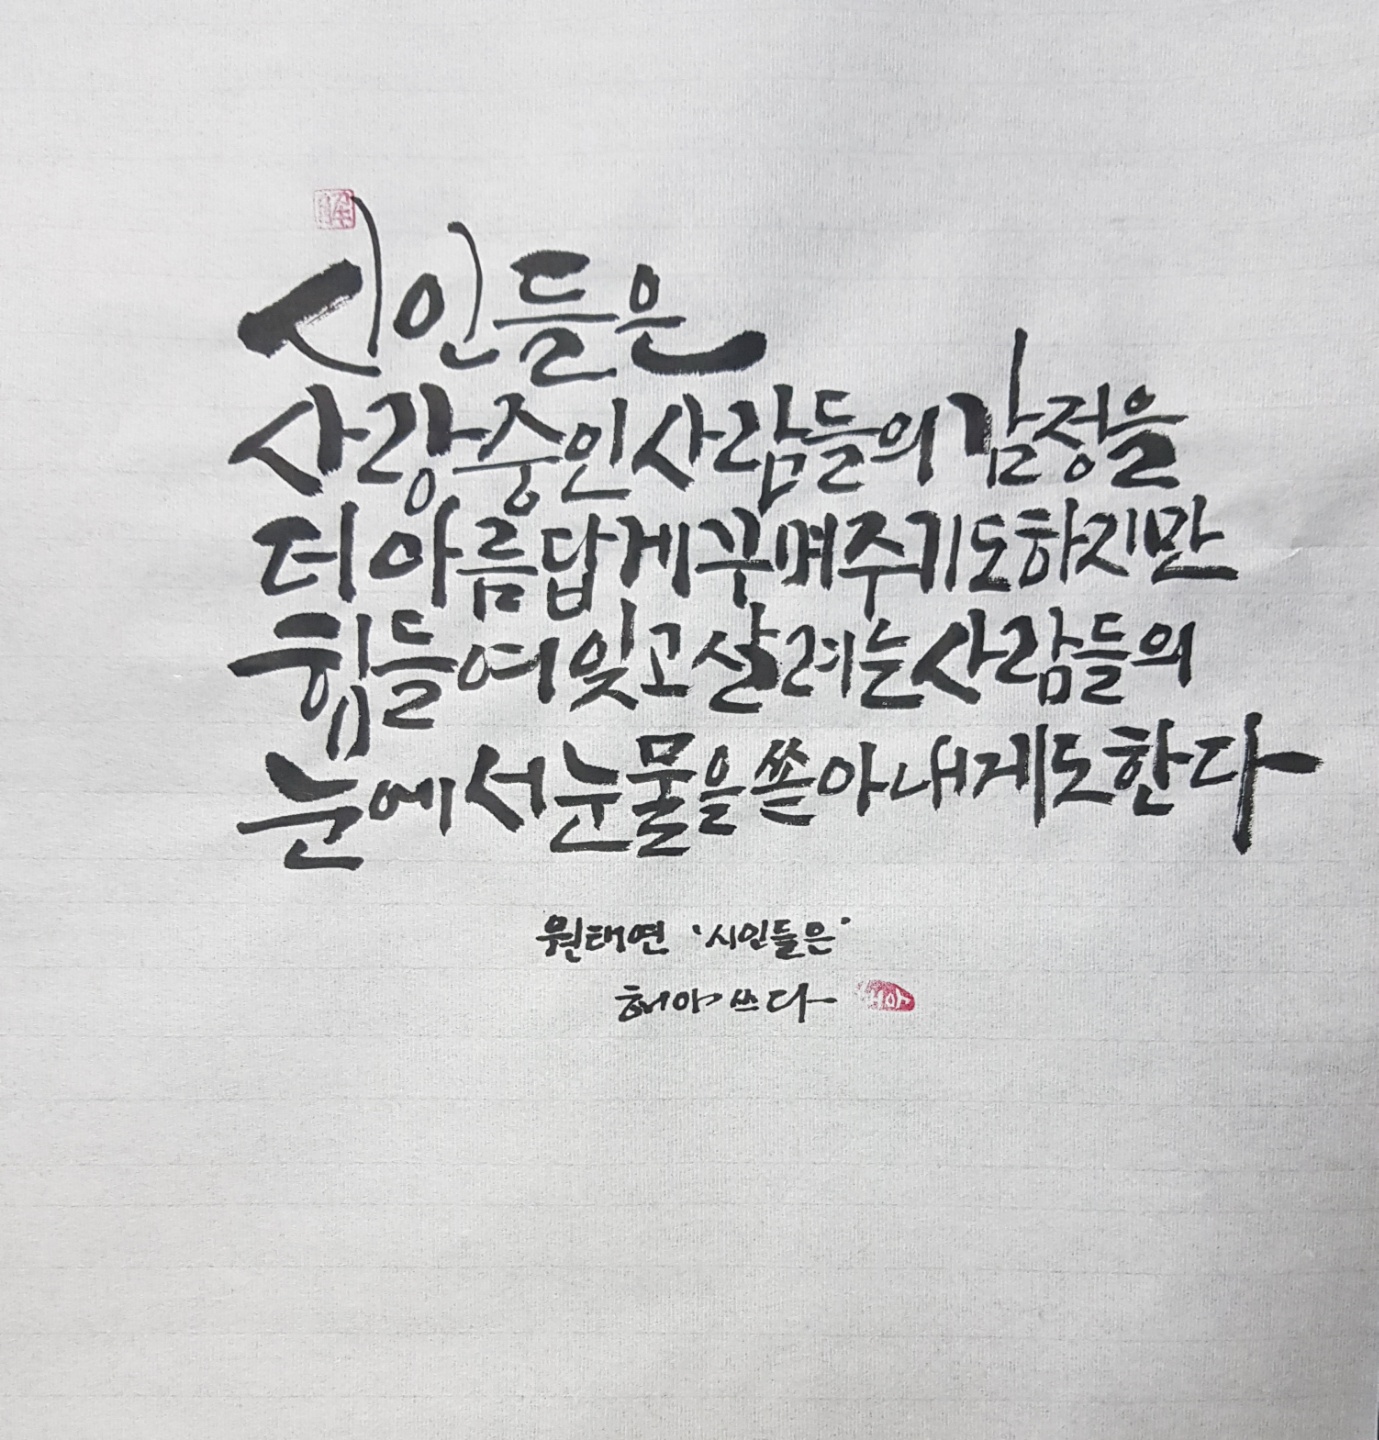 시인들은
사랑중인사람들의 감정을
더 아름답게 꾸며주기도하지만
힘들여 잊고 살려는 사람들의
눈에서 눈물을 쏟아내게도 한다
원태연 '시인들은'
해아 쓰다
해아